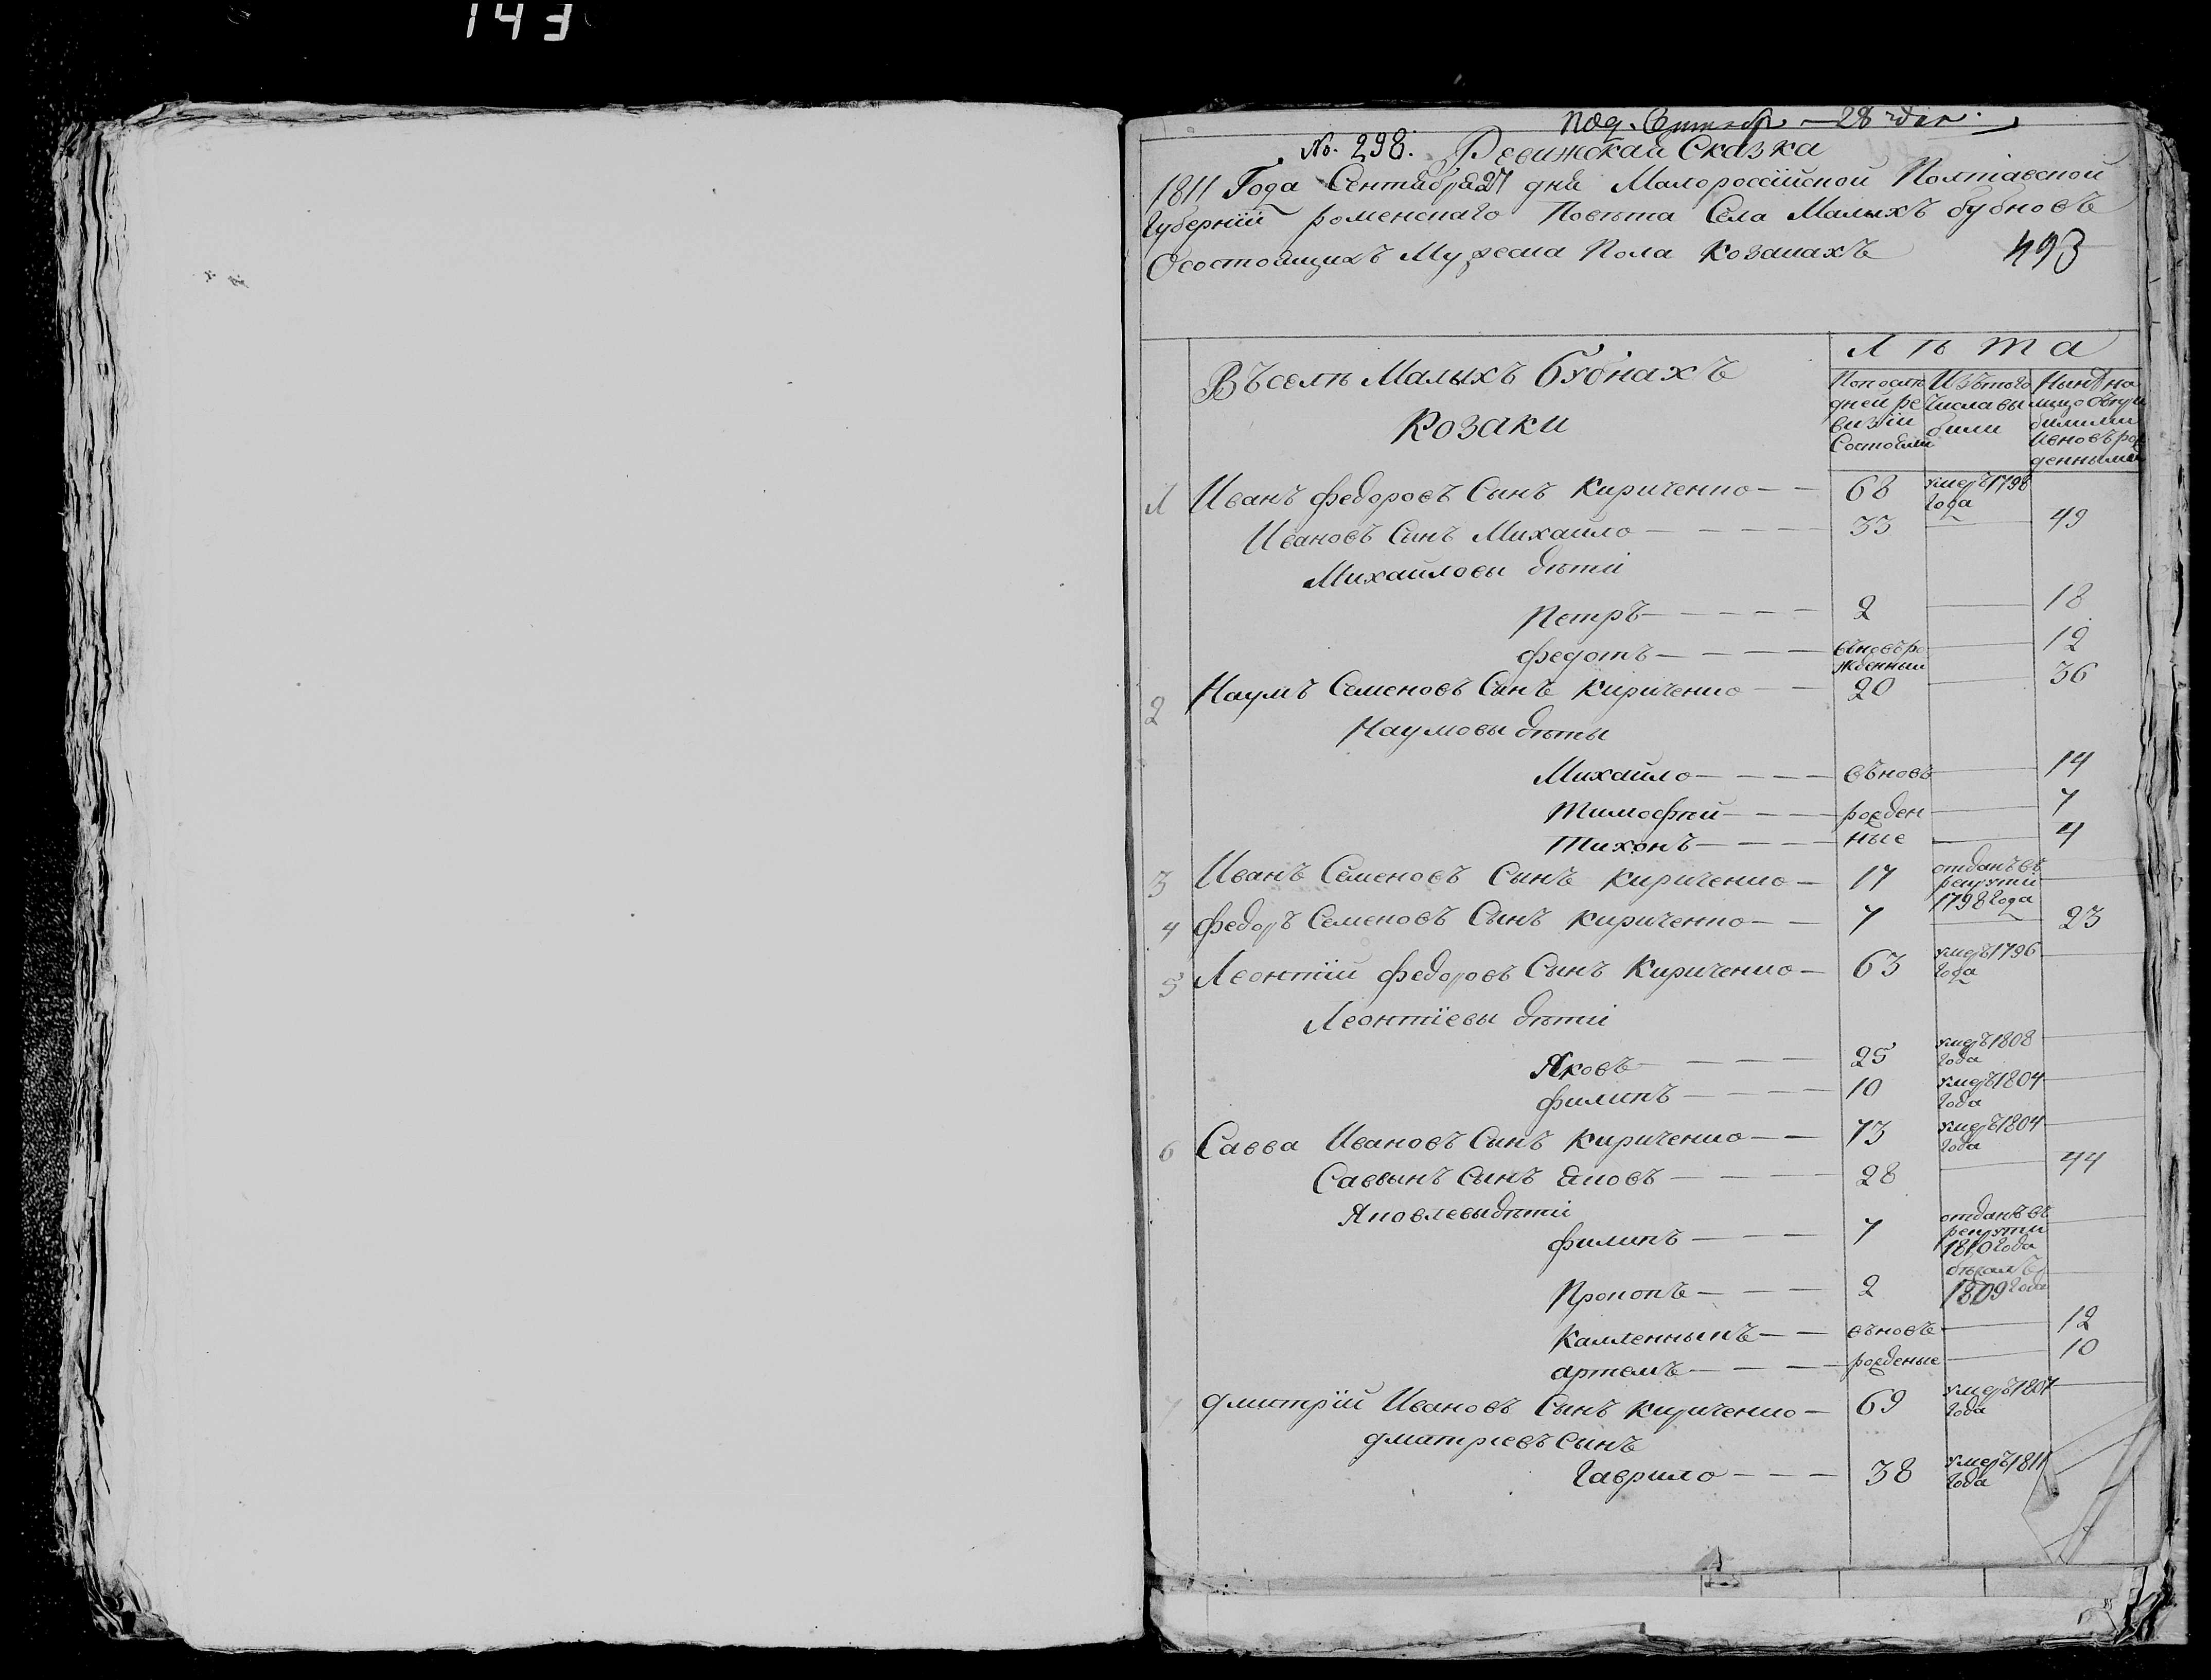 143
под. Сентября 28 дня
№ 298. Ревижская Сказка
1811 Года Сентября 27 дня Малороссійской Полтавской
Губерніи роменского Повѣта Села Малыхъ бубновъ
Осостоящихъ Мужеска Пола козакахъ
493
Лѣта
Въселѣ Малыхъ Бубнахъ
Козаки
Попослѣ Изътого Нынѣ на
дней ре числа вы лицо
визіи были
Состояли
денными
1 Иванъ федоровъ Сынъ Кириченко — — 68 умеръ 1798
Года
Ивановъ Сынъ Михаило — — — — 33 — 49
Михаиловы дѣти
Петръ — — — — 2 — 18
федотъ — — — — вновь ро — 12
жденний
2 Наумъ Семеновъ Сынъ Кириченко — — 20 — 36
Наумовы дѣты
Михаило — — — — въновь — 14
Тимофѣй — — — — рожден — 7
Тихонъ — — — — ные — 4
3 Иванъ Семеновъ Сынъ Кириченко — 17 отданъ въ
рекруты
1798 Года
4 федоръ Семеновъ Сынъ кириченко — — 7 — 23
5 Леонтїй федоровъ Сынъ Кириченко — 63 умеръ 1796
Года
Леонтїевы дѣти
Яковъ — — — — 25 умеръ 1808
Года
филипъ — — — — 10 умеръ 1804
Года
6 Савва Ивановъ Сынъ Кириченко — — 73 умеръ 1804
Года
Саввынъ сынъ Яковъ — — — — 28 — 44
Яковлевы дѣти
филипъ — — — — 7 отданъ въ
рекруты
1810 Года
Прокопъ — — — — 2
1809 Года
Каленныкъ — — въновь — 12
артемъ — — — — рожденые — 10
7 дмитрїй Ивановъ Сынъ кириченко — 69 умеръ 1807
Года
дматріевъ сынъ
Гаврило — — — 38 умеръ 1811
Года